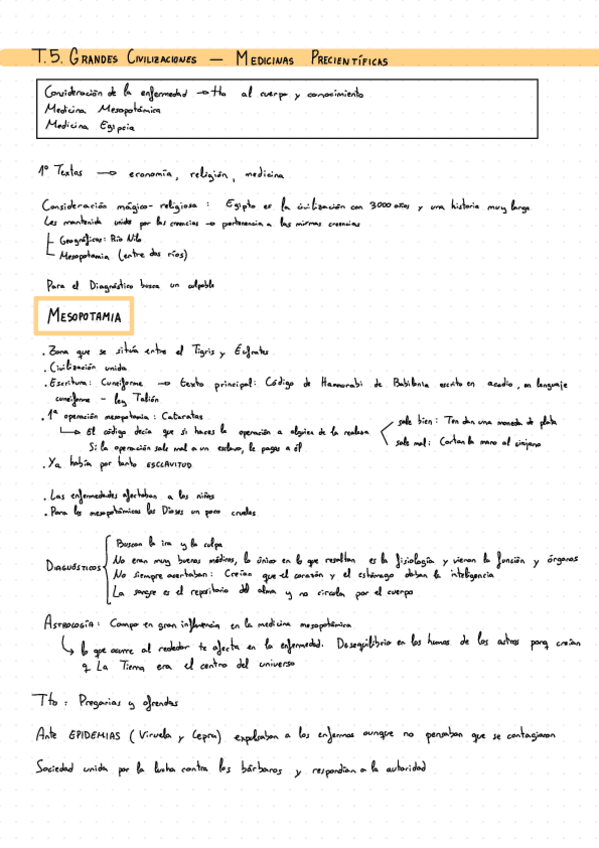 T.5. GRANDES CIVILIZACIONES — MEDICINAS PRECIENTÍFICAS
Consideración de la enfermedad → tto al cuerpo y conocimiento
Medicina Mesopotámica
Medicina Egipcia
1º Textos → economía, religión, medicina
Consideración mágico-religiosa : Egipto es la civilización con 3000 años y una historia muy larga
Les mantenía unido por las creencias → pertenencia a las mismas creencias
Geográficas: Río Nilo
Mesopotamia (entre dos ríos)
Para el Diagnóstico busca un culpable
MESOPOTAMIA
. Zona que se sitúa entre el Tigris y Eufrates
. Civilización unida
. Escritura: Cuneiforme → texto principal: Código de Hammorabi de Babilonia escrito en acadio, en lenguaje
cuneiforme - ley Talión
. 1ª operación mesopotamia : Cataratas
↳ El código decía que si haces la operación a alguien de la realeza
sale bien: Ten dan una moneda de plata
sale mal: Cortan la mano al cirujano
Si la operación sale mal a un esclavo, le pagas a él
. Ya había por tanto ESCLAVITUD
. Las enfermedades afectaban a los niños
. Para los mesopotámicos los Dioses un poco crueles
DIAGNÓSTICOS
Buscan la ira y la culpa
No eran muy buenos médicos, lo único en lo que resaltan es la fisiología y vieron la función y órganos
No siempre acertaban: Creían que el corazón y el estómago daban la inteligencia
La sangre es el repositorio del alma y no circula por el cuerpo
ASTROLOGÍA : Campo en gran influencia en la medicina mesopotámica
↳ lo que ocurre al rededor te afecta en la enfermedad. Desequilibrio en los humos de los astros porq creían
q La Tierra era el centro del universo
Tto : Pregarias y ofrendas
Ante EPIDEMIAS (Viruela y Lepra) expulsaban a los enfermos aunque no pensaban que se contagiaran
Sociedad unida por la lucha contra los bárbaros y respondían a la autoridad